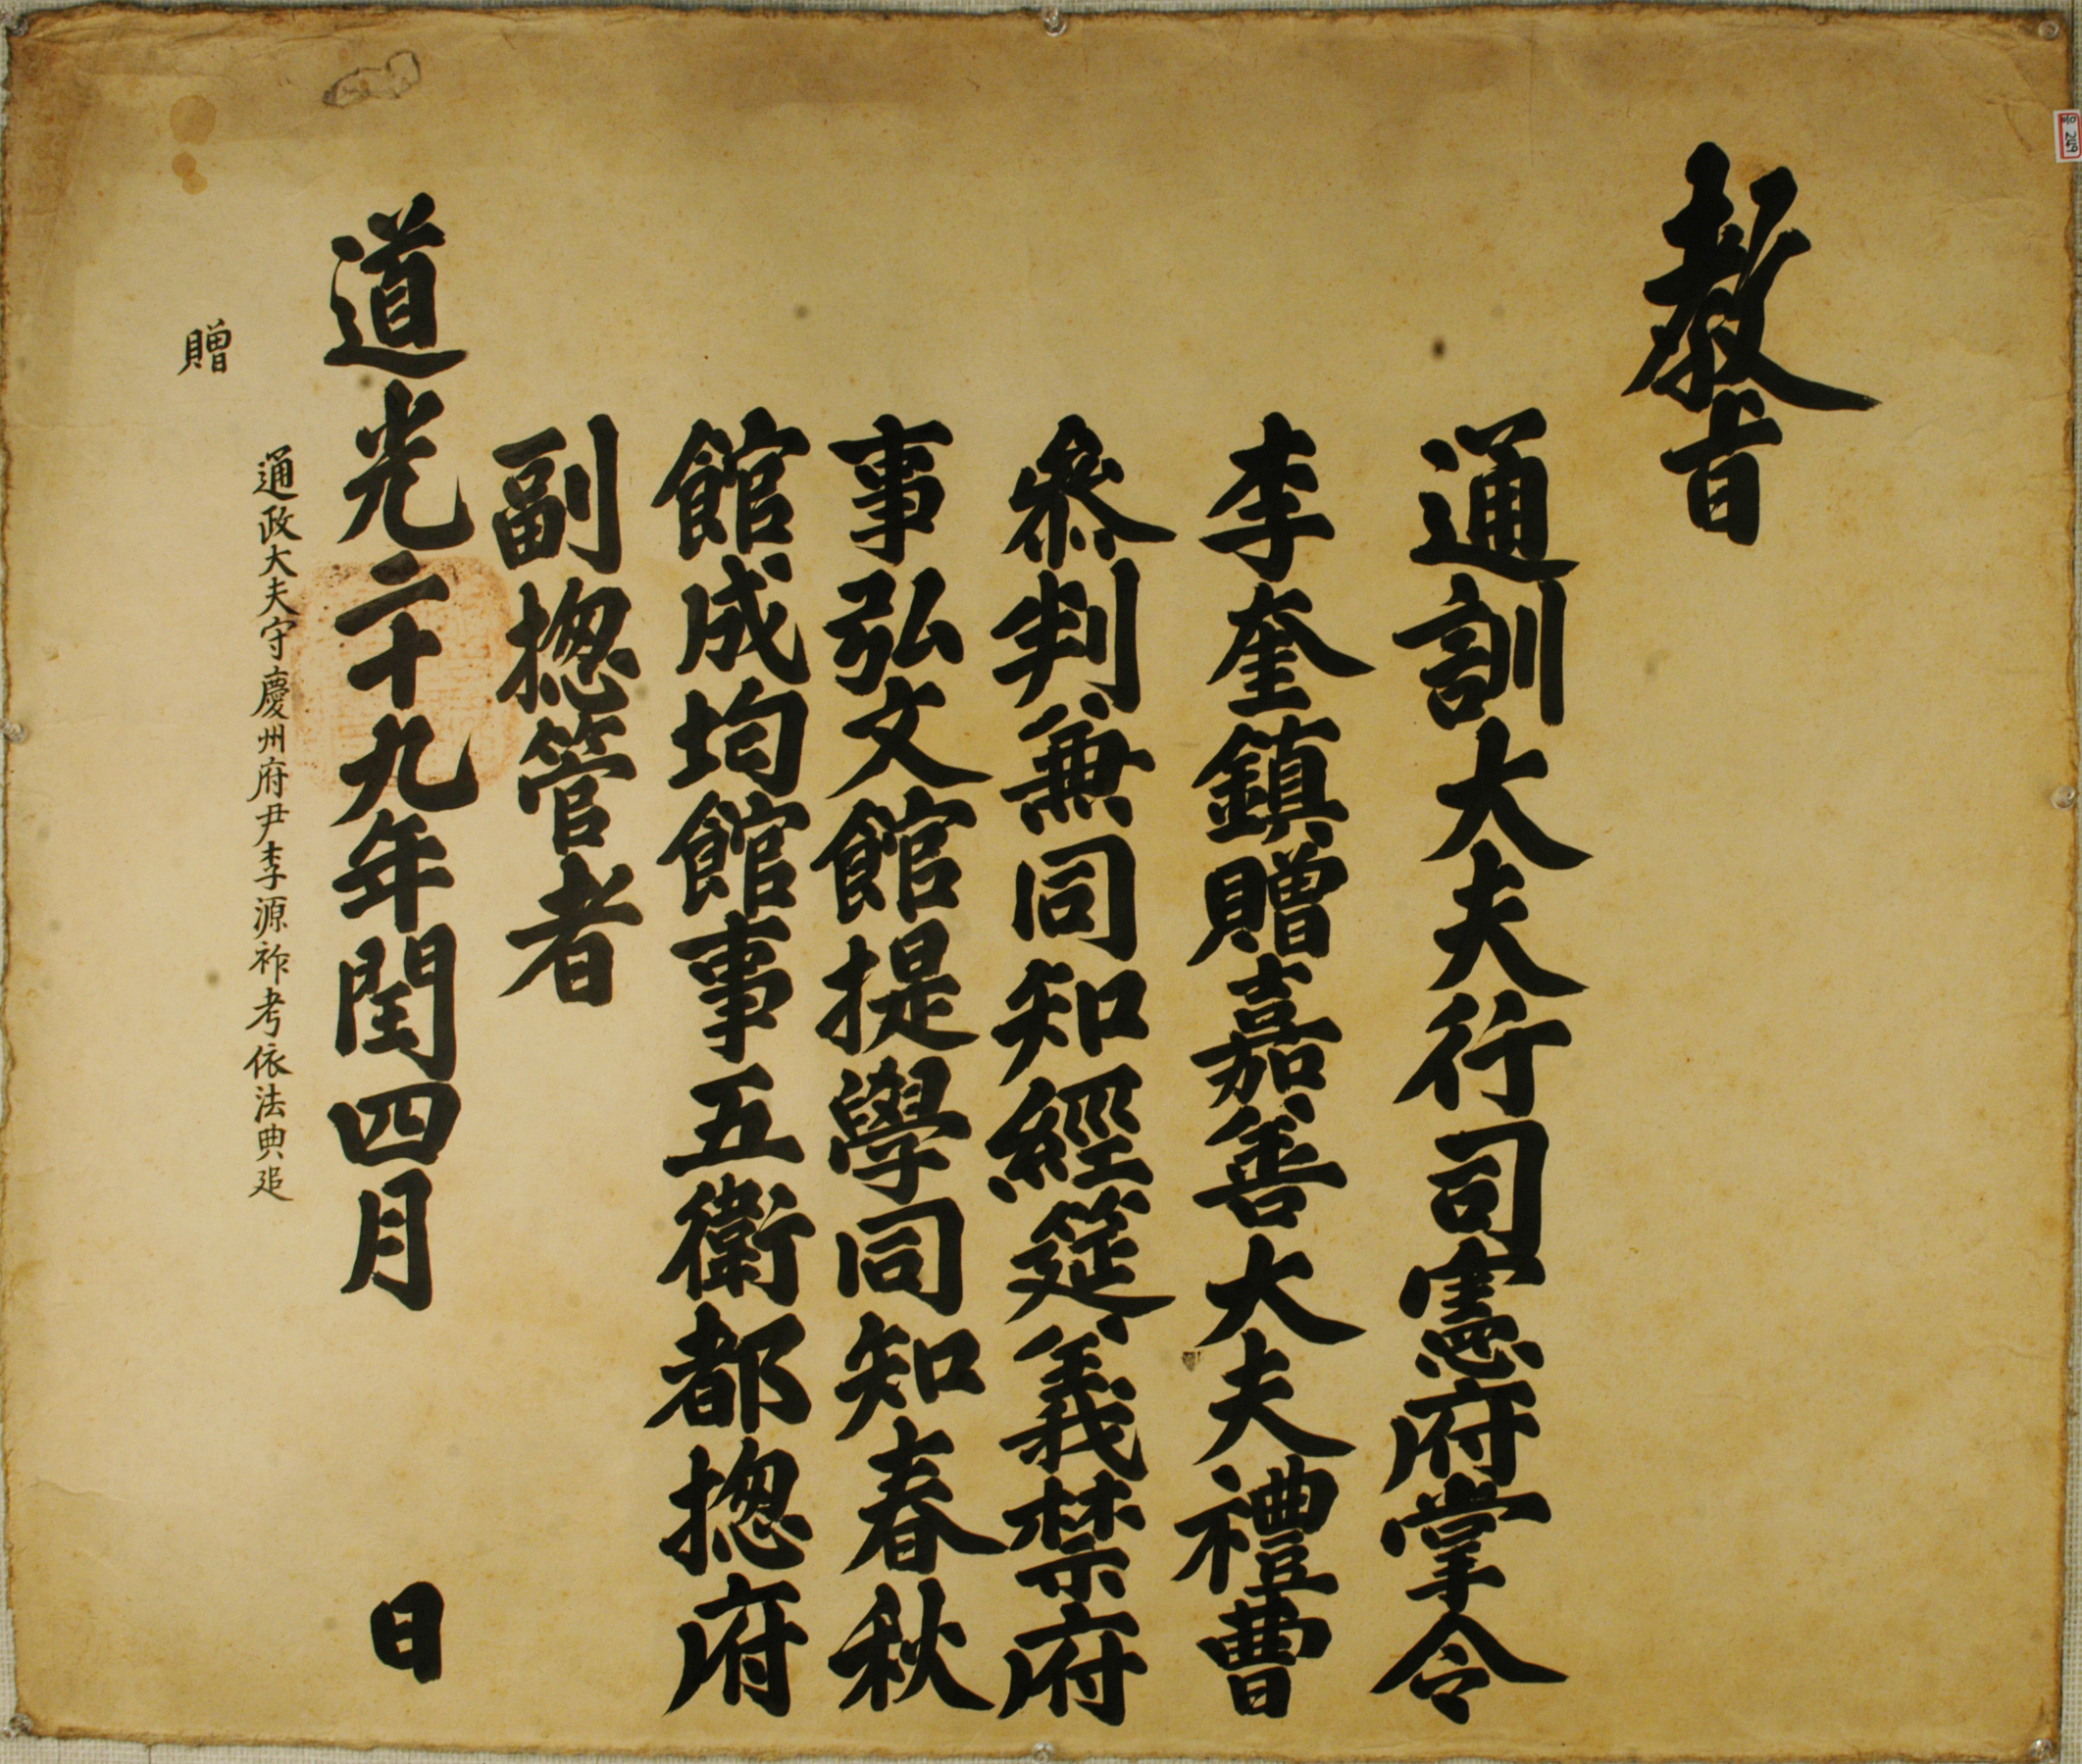 教旨
通訓大夫行司憲府掌令
李奎鎮贈嘉善大夫禮曹
參判兼同知經筵義禁府
事弘文館提學同知春秋
館成均館事五衛都揔府
副揔管者
道光二十九年閏四月 日
通政大夫守慶州府尹李源祚考依法典追
贈